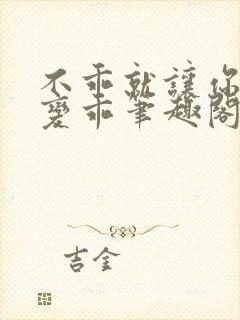 不乖就讓你
變乖筆趣閣
吉金